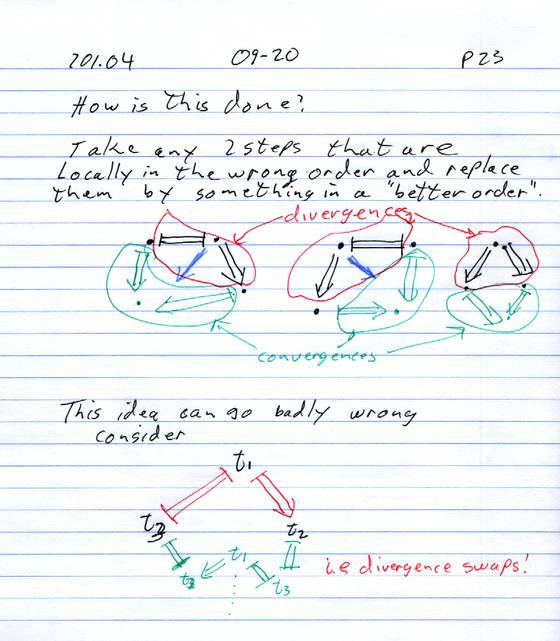 201.04 09-20 P23
How is this done?
Take any 2 steps that are
Locally in the wrong order and replace
them by something in a "better order".
divergences
convergences
This idea can go badly wrong
consider
t1
t3 t2
t2 t1 t3 i.e divergence swaps!